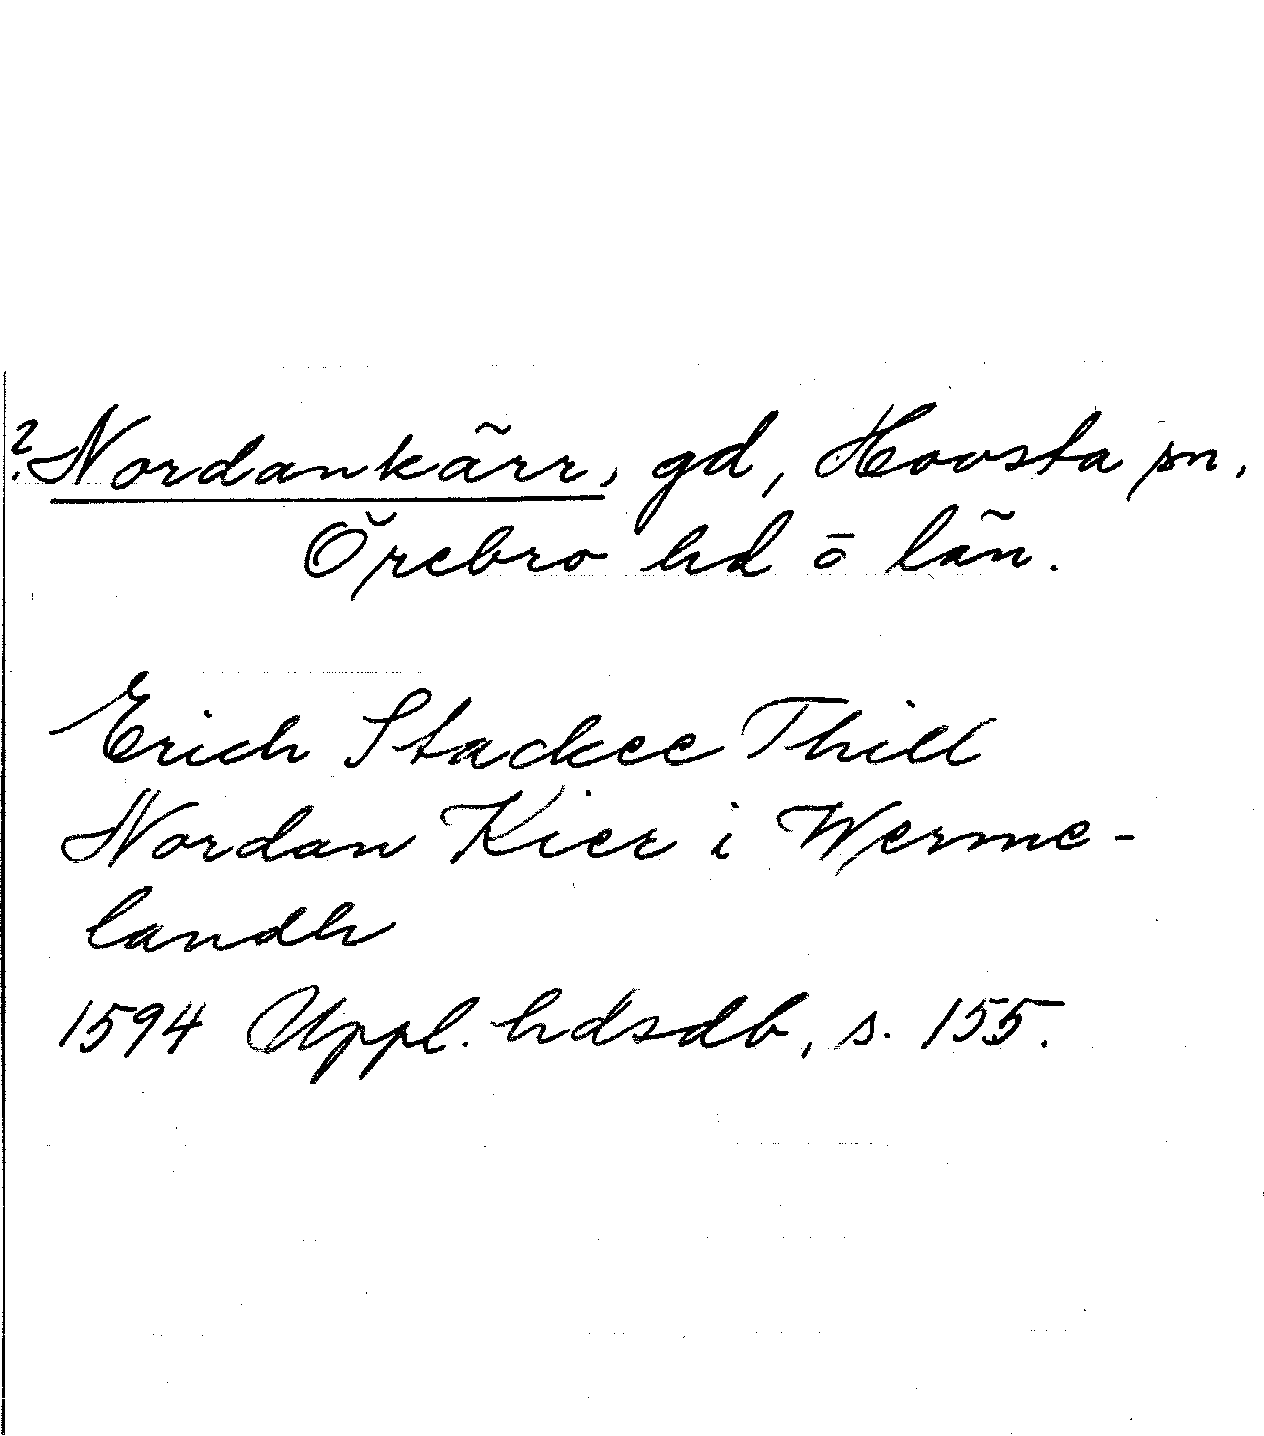 ? Nordankärr, gd, Hovsta sn,
Örebro hd o län.
Erich Stackee Thill
Nordan Kier i Werme-
landh
1594 Uppl. hdsdb, s. 155.